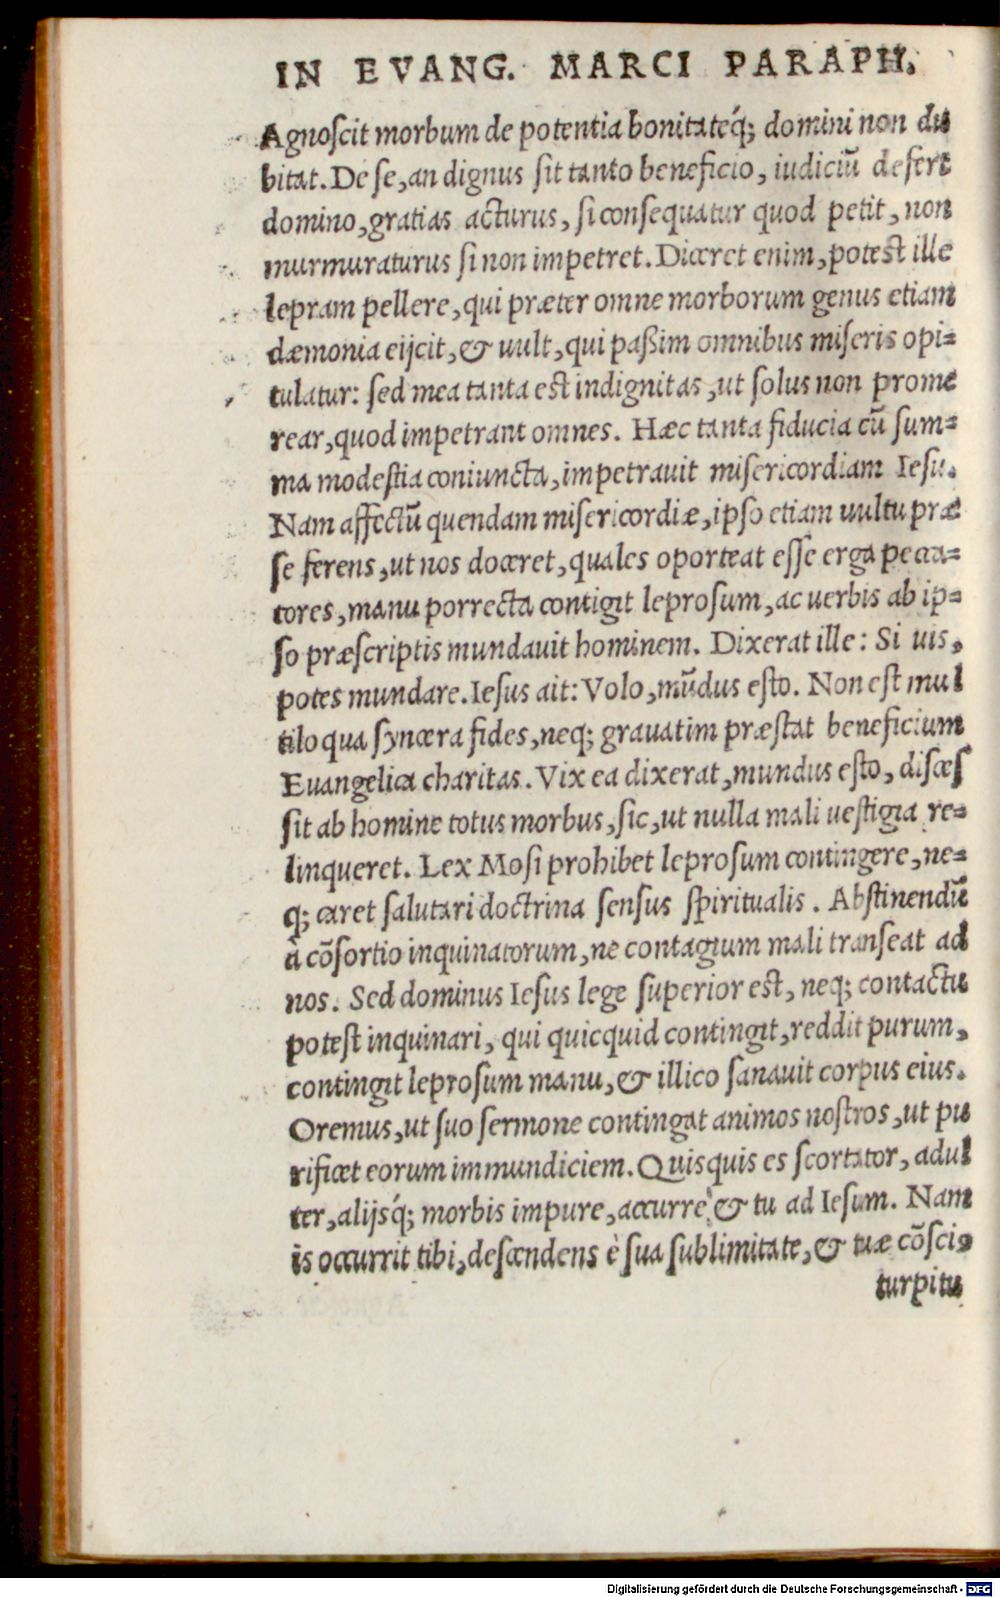 IN EVANG. MARCI PARAPH.
Agnoſcit morbum de potentia bonitateq́; domini non du
bitat. De ſe, an dignus ſit tanto beneficio, iudiciũ defert
domino, gratias acturus, ſi conſequatur quod petit, non
murmuraturus ſi non impetret. Diceret enim, poteſt ille
lepram pellere, qui præter omne morborum genus etiam
dæmonia eijcit, & uult, qui paßim omnibus miſeris opi=
tulatur: ſed mea tanta eſt indignitas, ut ſolus non prome
rear, quod impetrant omnes. Hæc tanta fiducia cũ ſum=
ma modeſtia coniuncta, impetrauit miſericordiam Ieſu.
Nam affectũ quendam miſericordiæ, ipſo etiam uultu præ
ſe ferens, ut nos doceret, quales oporteat eſſe erga pecca=
tores, manu porrecta contigit leproſum, ac uerbis ab ip=
ſo præſcriptis mundauit hominem. Dixerat ille: Si uis,
potes mundare. Ieſus ait: Volo, mũdus eſto. Non eſt mul
tiloqua ſyncera fides, neq; grauatim præſtat beneficium
Euangelica charitas. Vix ea dixerat, mundus eſto, diſceſ
ſit ab homine totus morbus, ſic, ut nulla mali ueſtigia re=
linqueret. Lex Moſi prohibet leproſum contingere, ne=
q; caret ſalutari doctrina ſenſus ſpiritualis. Abſtinendũ
à cõſortio inquinatorum, ne contagium mali tranſeat ad
nos. Sed dominus Ieſus lege ſuperior eſt, neq; contactu
poteſt inquinari, qui quicquid contingit, reddit purum,
contingit leproſum manu, & illico ſanauit corpus eius.
Oremus, ut ſuo ſermone contingat animos noſtros, ut pu
rificet eorum immundiciem. Quisquis es ſcortator, adul
ter, alijsq́; morbis impure, accurre & tu ad Ieſum. Nam
is occurrit tibi, deſcendens è ſua ſublimitate, & tuæ cõſci,
turpitu
Digitalisierung gefördert durch die Deutsche Forschungsgemeinschaft - DFG